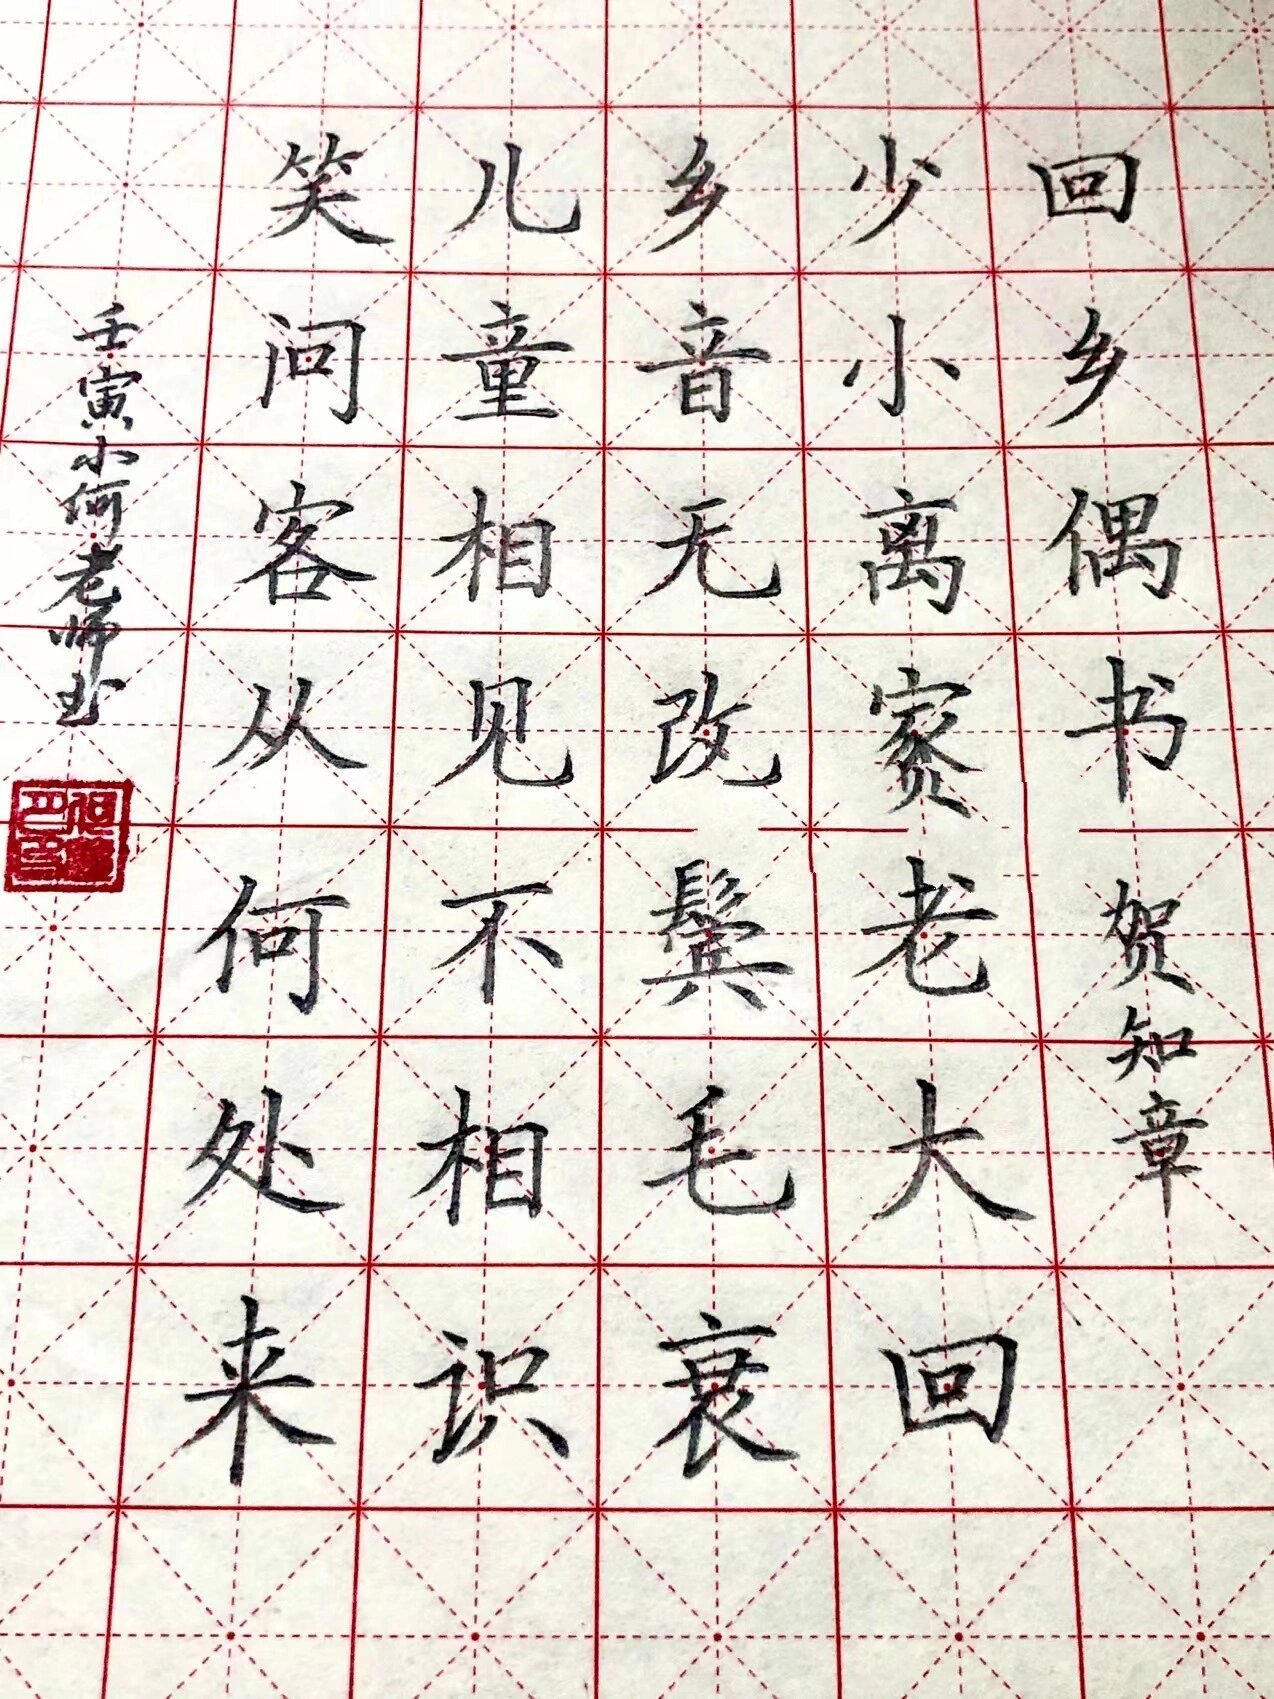 回乡偶书 贺知章
少小离老大回
乡音无改鬓毛衰
儿童相见不相识
笑问客从何处来
壬寅小何老师书